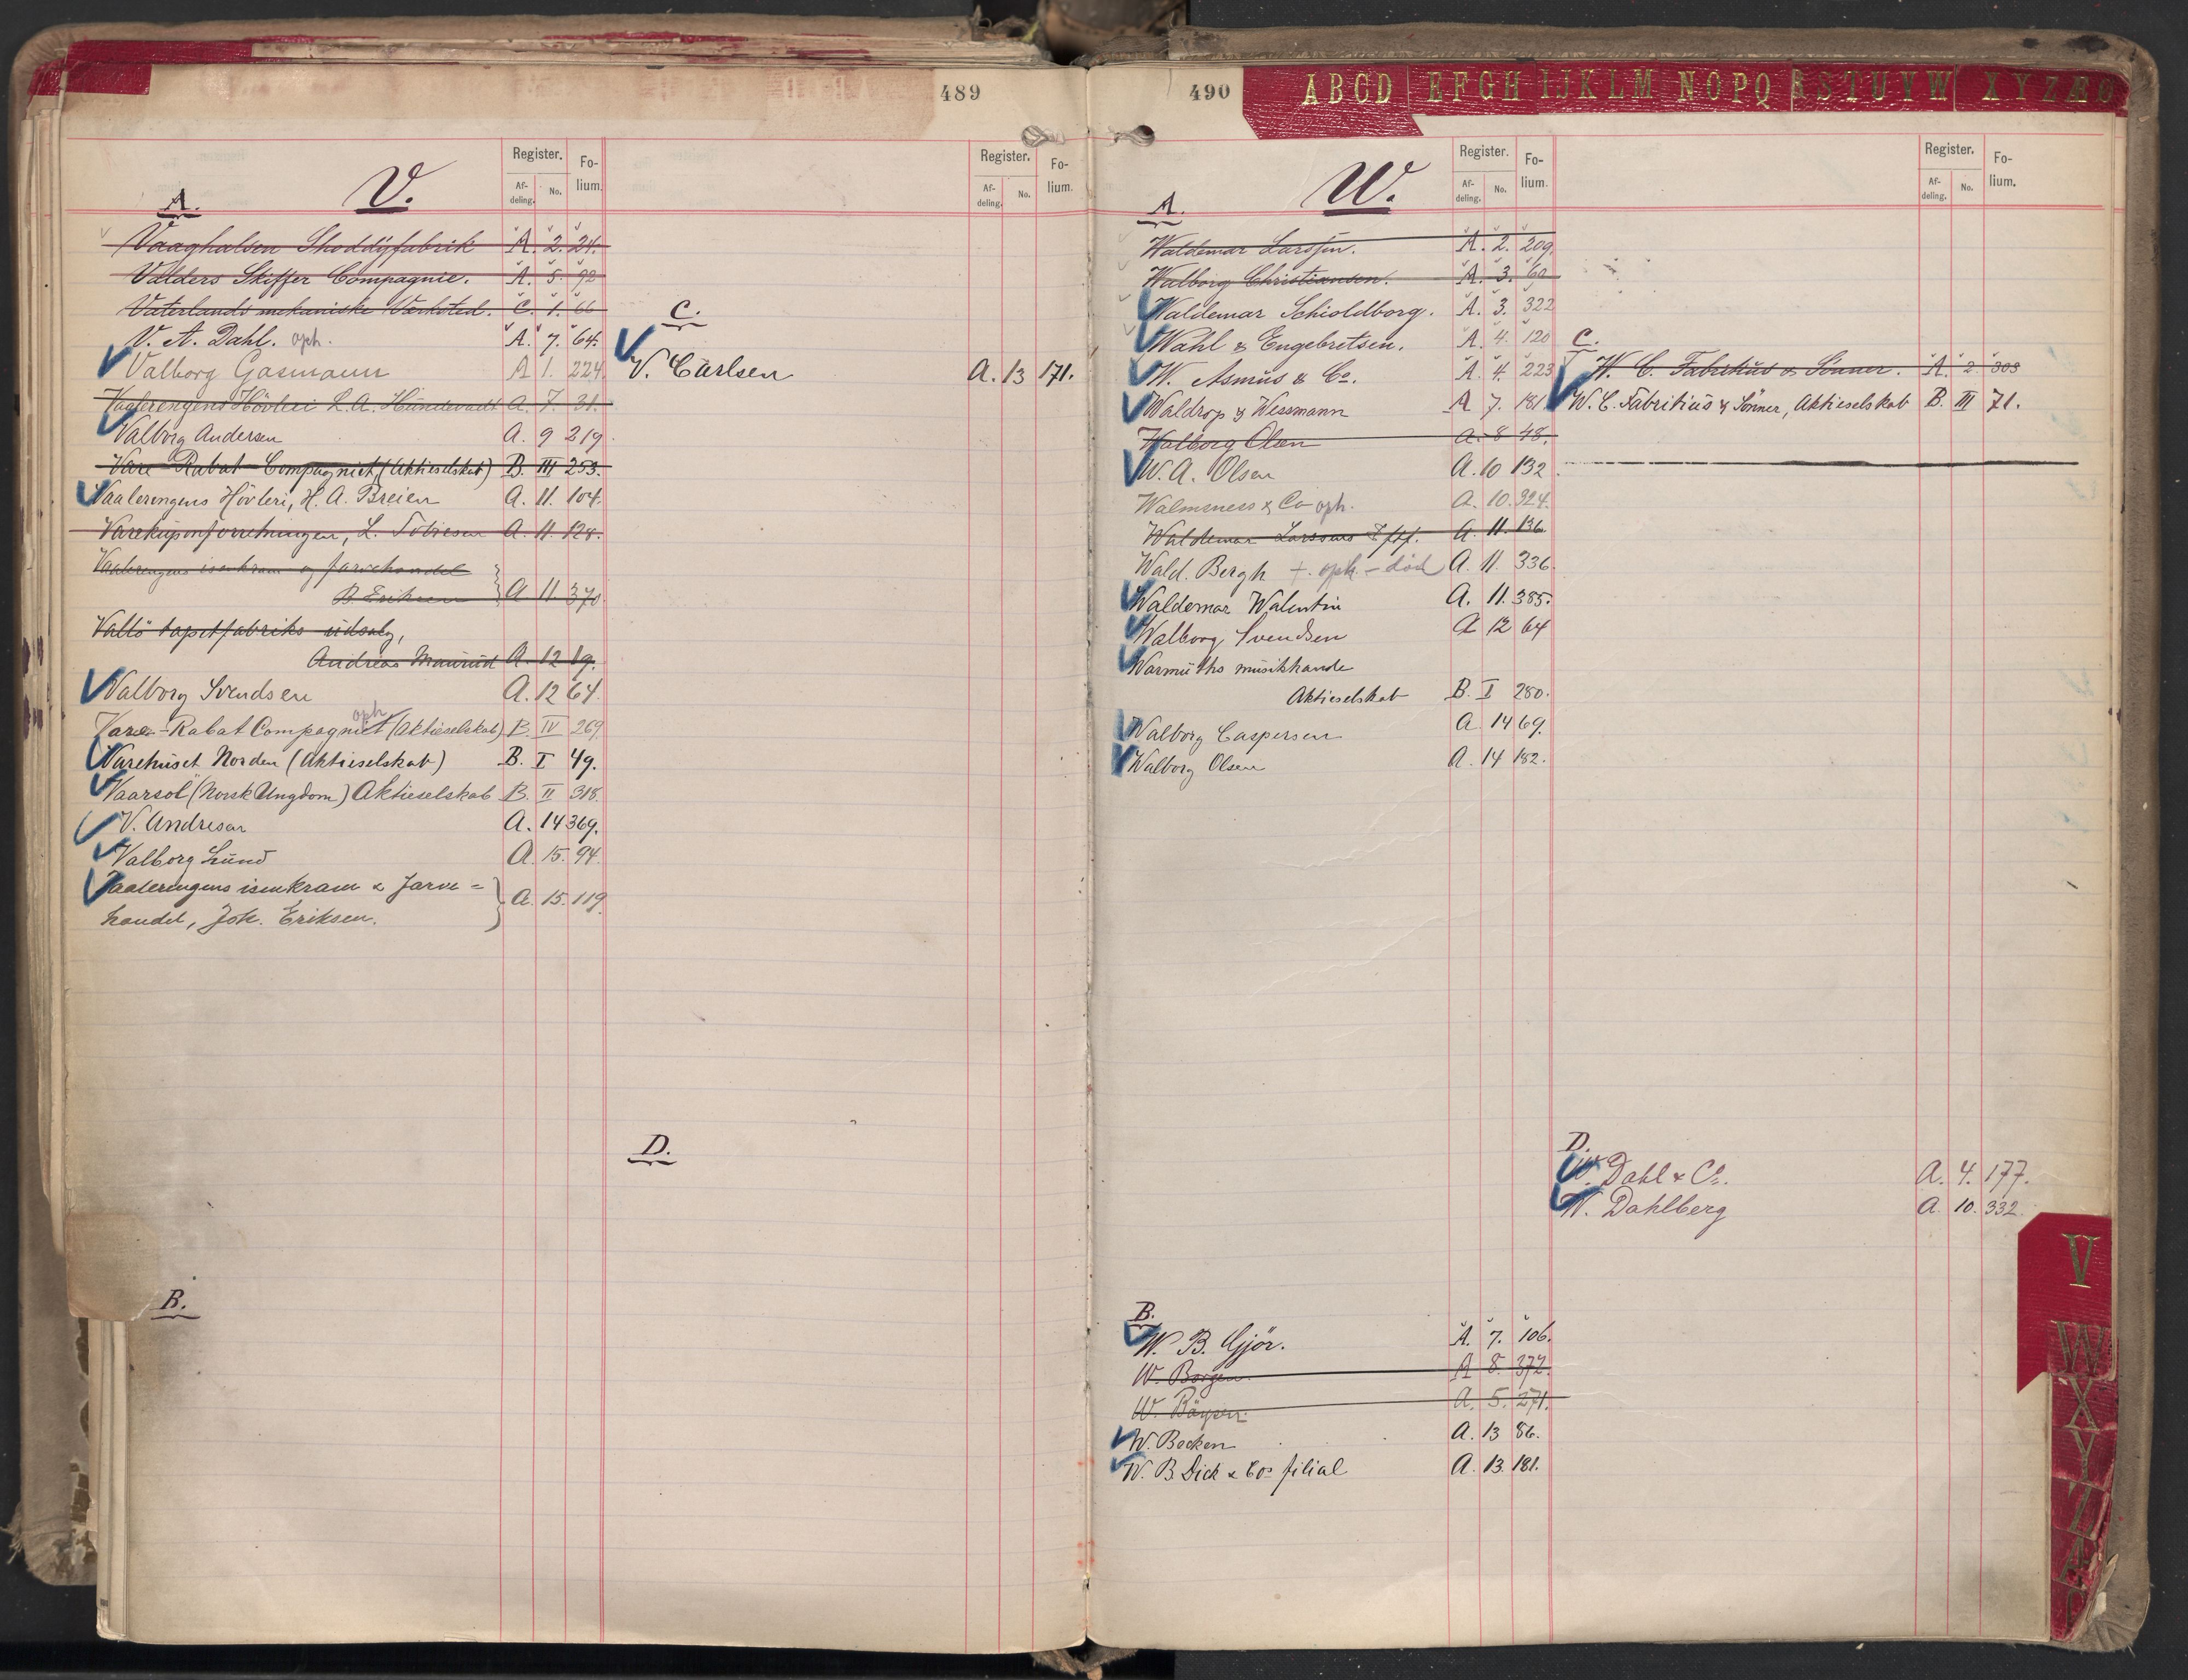 489
V.
Register. Folium.
Afdeling. No.
A.
Vaaghalsen Shoddyfabrik A. 2. 24.
Valders Skiffer Compagnie. A. 5. 92
Vaterlands mekaniske Værksted. C. 1. 66
V. A. Dahl. oph. A. 7. 64.
Valborg Gasmann A 1. 224.
Vaalerengens Hövleri L. A. Hundevadt A. 7. 31.
Valborg Andersen A. 9 219
Vare-Rabat-Compagniet (Aktieselskab) B. III 253.
Vaalerengens Hövleri, H. A. Breien A. 11. 104.
Varekuponforretningen, L. Tobiesen A. 11. 128.
Vaalerengens isenkram og farvehandel
B. Eriksen A 11. 370
Vallö tapetfabriks udsalg,
Andreas Maurud A. 12 19.
Valborg Svendsen A. 12 64.
Vare-Rabat Compagniet (Aktieselskab) oph B. IV 269
Varehuset Norden (Aktieselskab) B. I 49.
"Vaarsol" (Norsk Ungdom) Aktieselskab B. II 318.
V. Andresen A. 14 369.
Valborg Lund A. 15. 94.
Vaalerengens isenkram & farve=
handel, Joh. Eriksen. A. 15. 119.
B.
Register. Folium.
Afdeling. No.
C.
V. Carlsen A. 13 171.
D.
490
ABCD EFGH IJKLM NOPQ RSTUVW XYZÆØ
W.
Register. Folium.
Afdeling. No.
A.
Waldemar Larssen. A. 2. 209.
Walborg Christiansen. A. 3. 60
Waldemar Schioldborg. A. 3. 322
Wahl & Engebretsen. A. 4. 120
W. Asmus & Co. A. 4. 223
Waldrop & Wessmann A 7. 181
Walborg Olsen A. 8 48.
W. A. Olsen A. 10 132
Walmsness & Co oph. A. 10. 324.
Waldemar Larssens Eftf. A. 11. 136
Wald. Bergh +. oph. - död A. 11. 336.
Waldemar Walentin A. 11. 385.
Walborg Svendsen A 12 64
Warmuths musikhande
Aktieselskab B. I 280.
Walborg Caspersen A. 14 69.
Walborg Olsen A. 14 182.
B.
W. B. Gjör. A. 7. 106.
W. Borgen. A 8. 372.
W. Böysen. A. 5. 271.
W. Becken A. 13 86.
W. B. Dick & Cos filial A. 13. 181.
Register. Folium.
Afdeling. No.
C.
W. C. Fabritius & Sønner. A. 2. 303
W. C. Fabritius & Sønner, Aktieselskab B. III 71.
D.
W. Dahl & Co. A. 4. 177.
W. Dahlberg A. 10. 332.
V
W
X
Y
Z
Æ